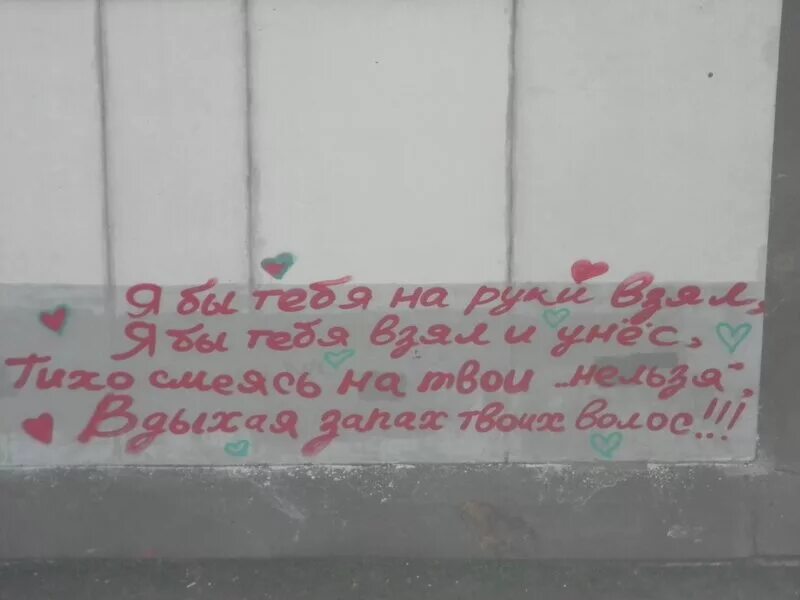 Я бы тебя на руки взял,
Я бы тебя взял и унёс,
Тихо смеясь на твои „нельзя",
Вдыхая запах твоих волос!!!